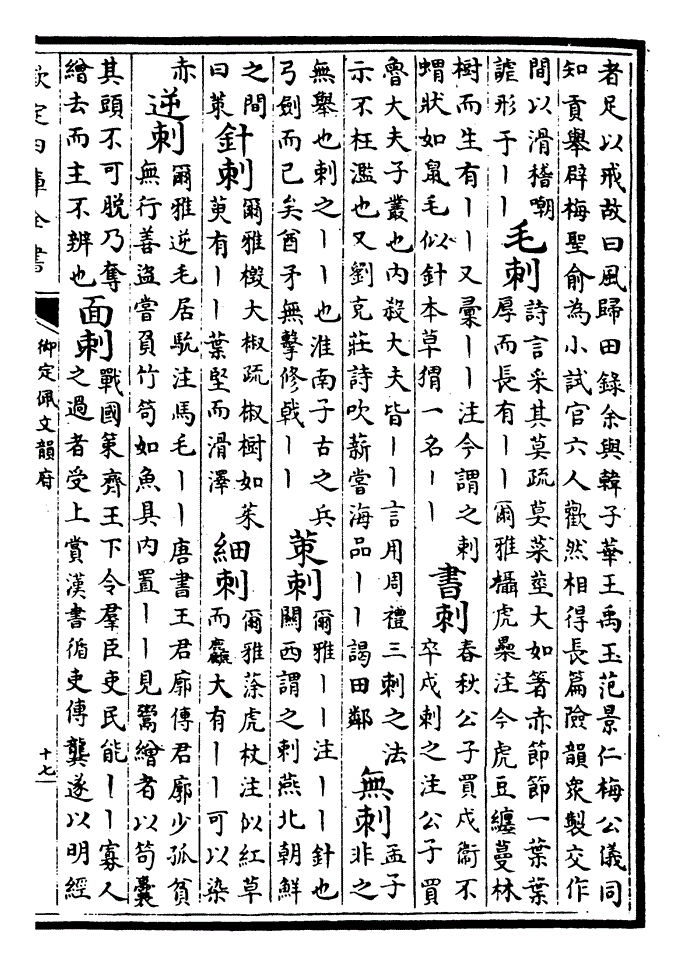 者足以戒故曰風歸田錄余與韓子華王禹玉范景仁梅公儀同
知貢舉辟梅聖俞為小試官六人歡然相得長篇險韻衆製交作
間以滑稽嘲
謔形于丨丨
毛刺
詩言采其莫疏莫菜莖大如箸赤節節一葉葉
厚而長有丨丨爾雅欇虎櫐注今虎豆纏蔓林
樹而生有丨丨又彙丨丨注今謂之刺
蝟狀如鼠毛似針本草猬一名丨丨
書刺
春秋公子買戍衛不
卒戍刺之注公子買
魯大夫子叢也内殺大夫皆丨丨言用周禮三刺之法
示不枉濫也又劉克莊詩吹薪嘗海品丨丨謁田鄰
無刺
孟子
非之
無舉也刺之丨丨也淮南子古之兵
弓劍而已矣酋矛無擊修戟丨丨
茦刺
爾雅丨丨注丨丨針也
關西謂之刺燕北朝鮮
之間
曰茦
針刺
爾雅樧大椒疏椒樹如茱
萸有丨丨葉堅而滑澤
細刺
爾雅蒤虎杖注似紅草
而麤大有丨丨可以染
赤
逆刺
爾雅逆毛居馻注馬毛丨丨唐書王君廓傳君廓少孤貧
無行善盜嘗負竹笱如魚具内置丨丨見鬻繒者以笱囊
其頭不可脫乃奪
繒去而主不辨也
面刺
戰國策齊王下令羣臣吏民能丨丨寡人
之過者受上賞漢書循吏傳龔遂以明經
欽定四庫全書
御定佩文韻府
十七